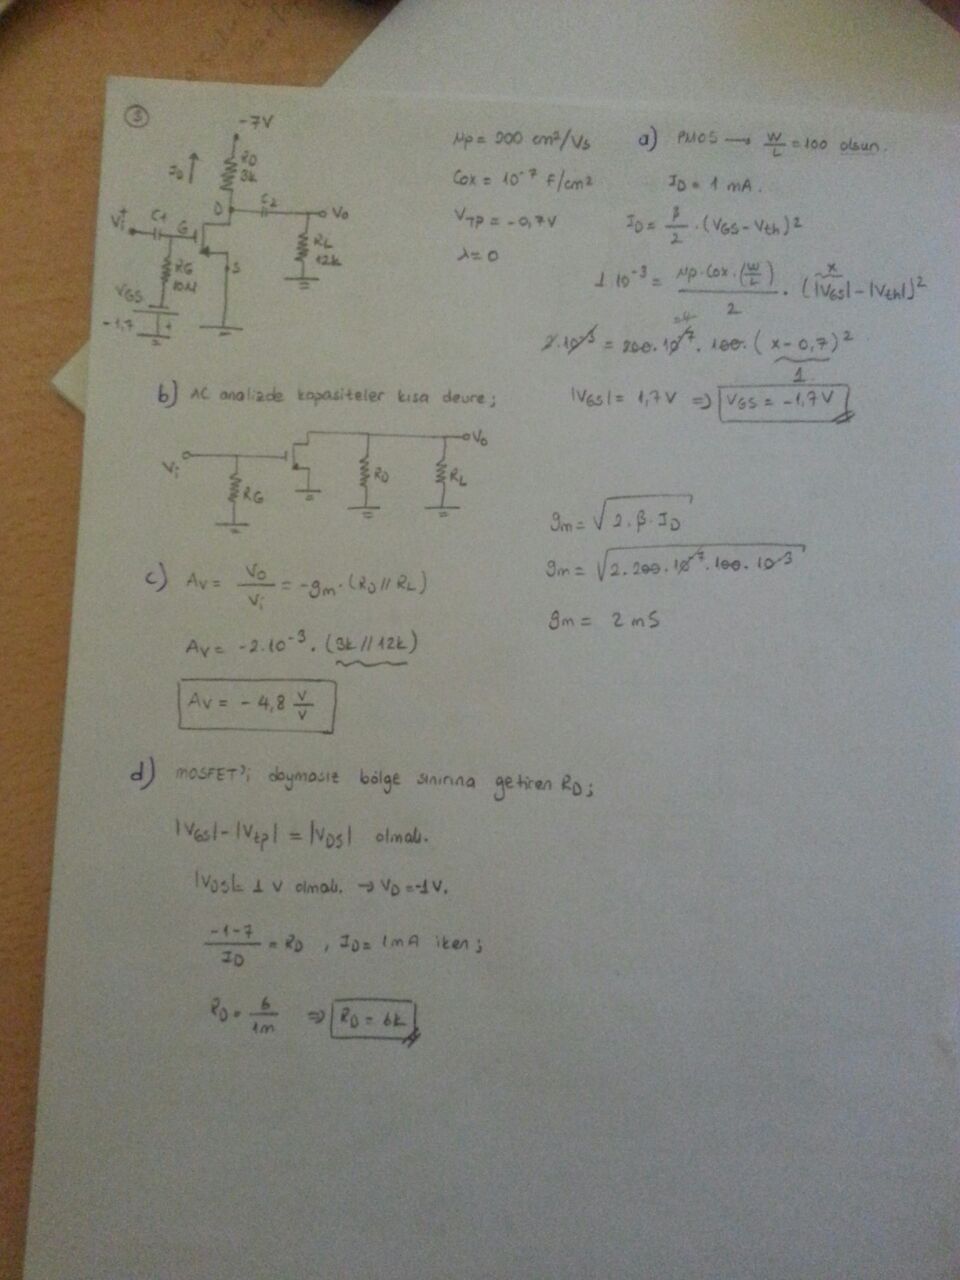 3
-7V
ID ↑
RD
3k
D
C2
Vo
Vi+
C1
G
RG
10M
S
RL
12k
VGS
-1,7
+
μp = 200 cm²/Vs
Cox = 10⁻⁷ F/cm²
VTP = -0,7V
λ = 0
a) PMOS → W/L = 100 olsun.
ID = 1 mA.
ID = β/2 . (VGS - Vth)²
1.10⁻³ = μp.Cox.(W/L)/2 . (|VGS| - |Vth|)²
x
2.10⁻³ = 200.10⁻⁷.100.(x-0,7)²
1
|VGS| = 1,7V ⇒ VGS = -1,7V
b) AC analizde kapasiteler kısa devre;
Vi
RG
RD
RL
Vo
c) Av = Vo/Vi = -gm.(RD//RL)
Av = -2.10⁻³.(3k//12k)
Av = -4,8 V/V
gm = √2.β.ID
gm = √2.200.10⁻⁷.100.10⁻³
gm = 2 mS
d) MOSFET'i doymasız bölge sınırına getiren RD;
|VGS| - |Vtp| = |VDS| olmalı.
|VDS| = 1 V olmalı. → VD = -1V.
-1-7/ID = RD , ID = 1mA iken;
RD = 6/1m ⇒ RD = 6k